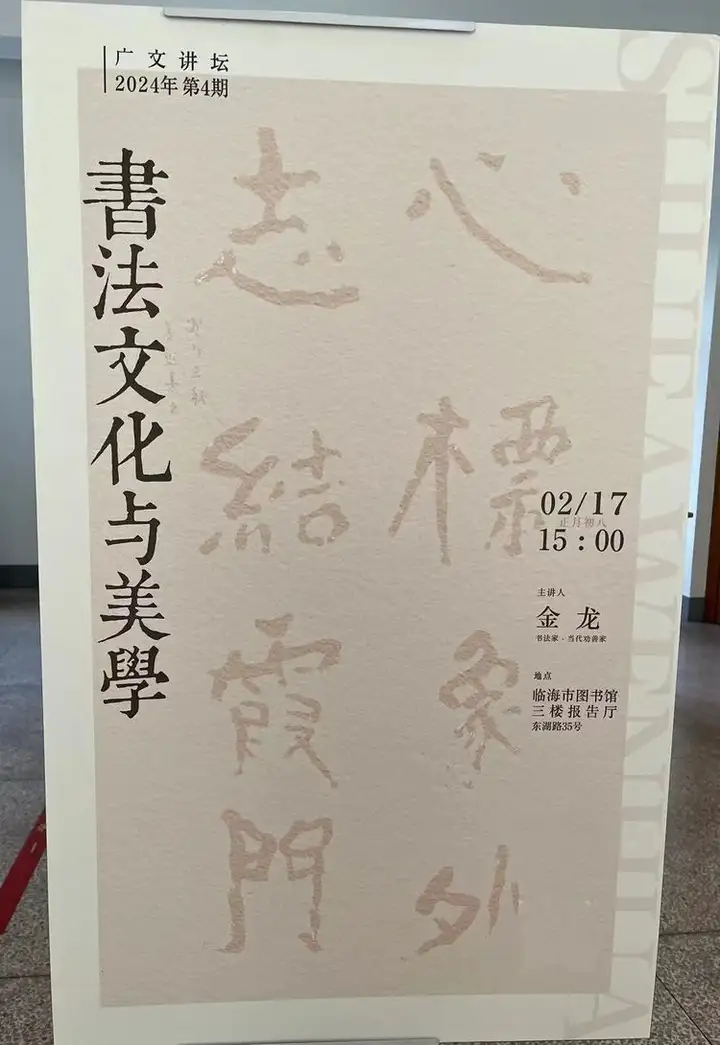 广文讲坛
2024年 第4期
書法文化与美學
心標象外
志結霞門
02/17
正月初八
15：00
主讲人
金龙
书法家·当代劝善家
地点
临海市图书馆
三楼报告厅
东湖路35号
SHUFAWENHUA